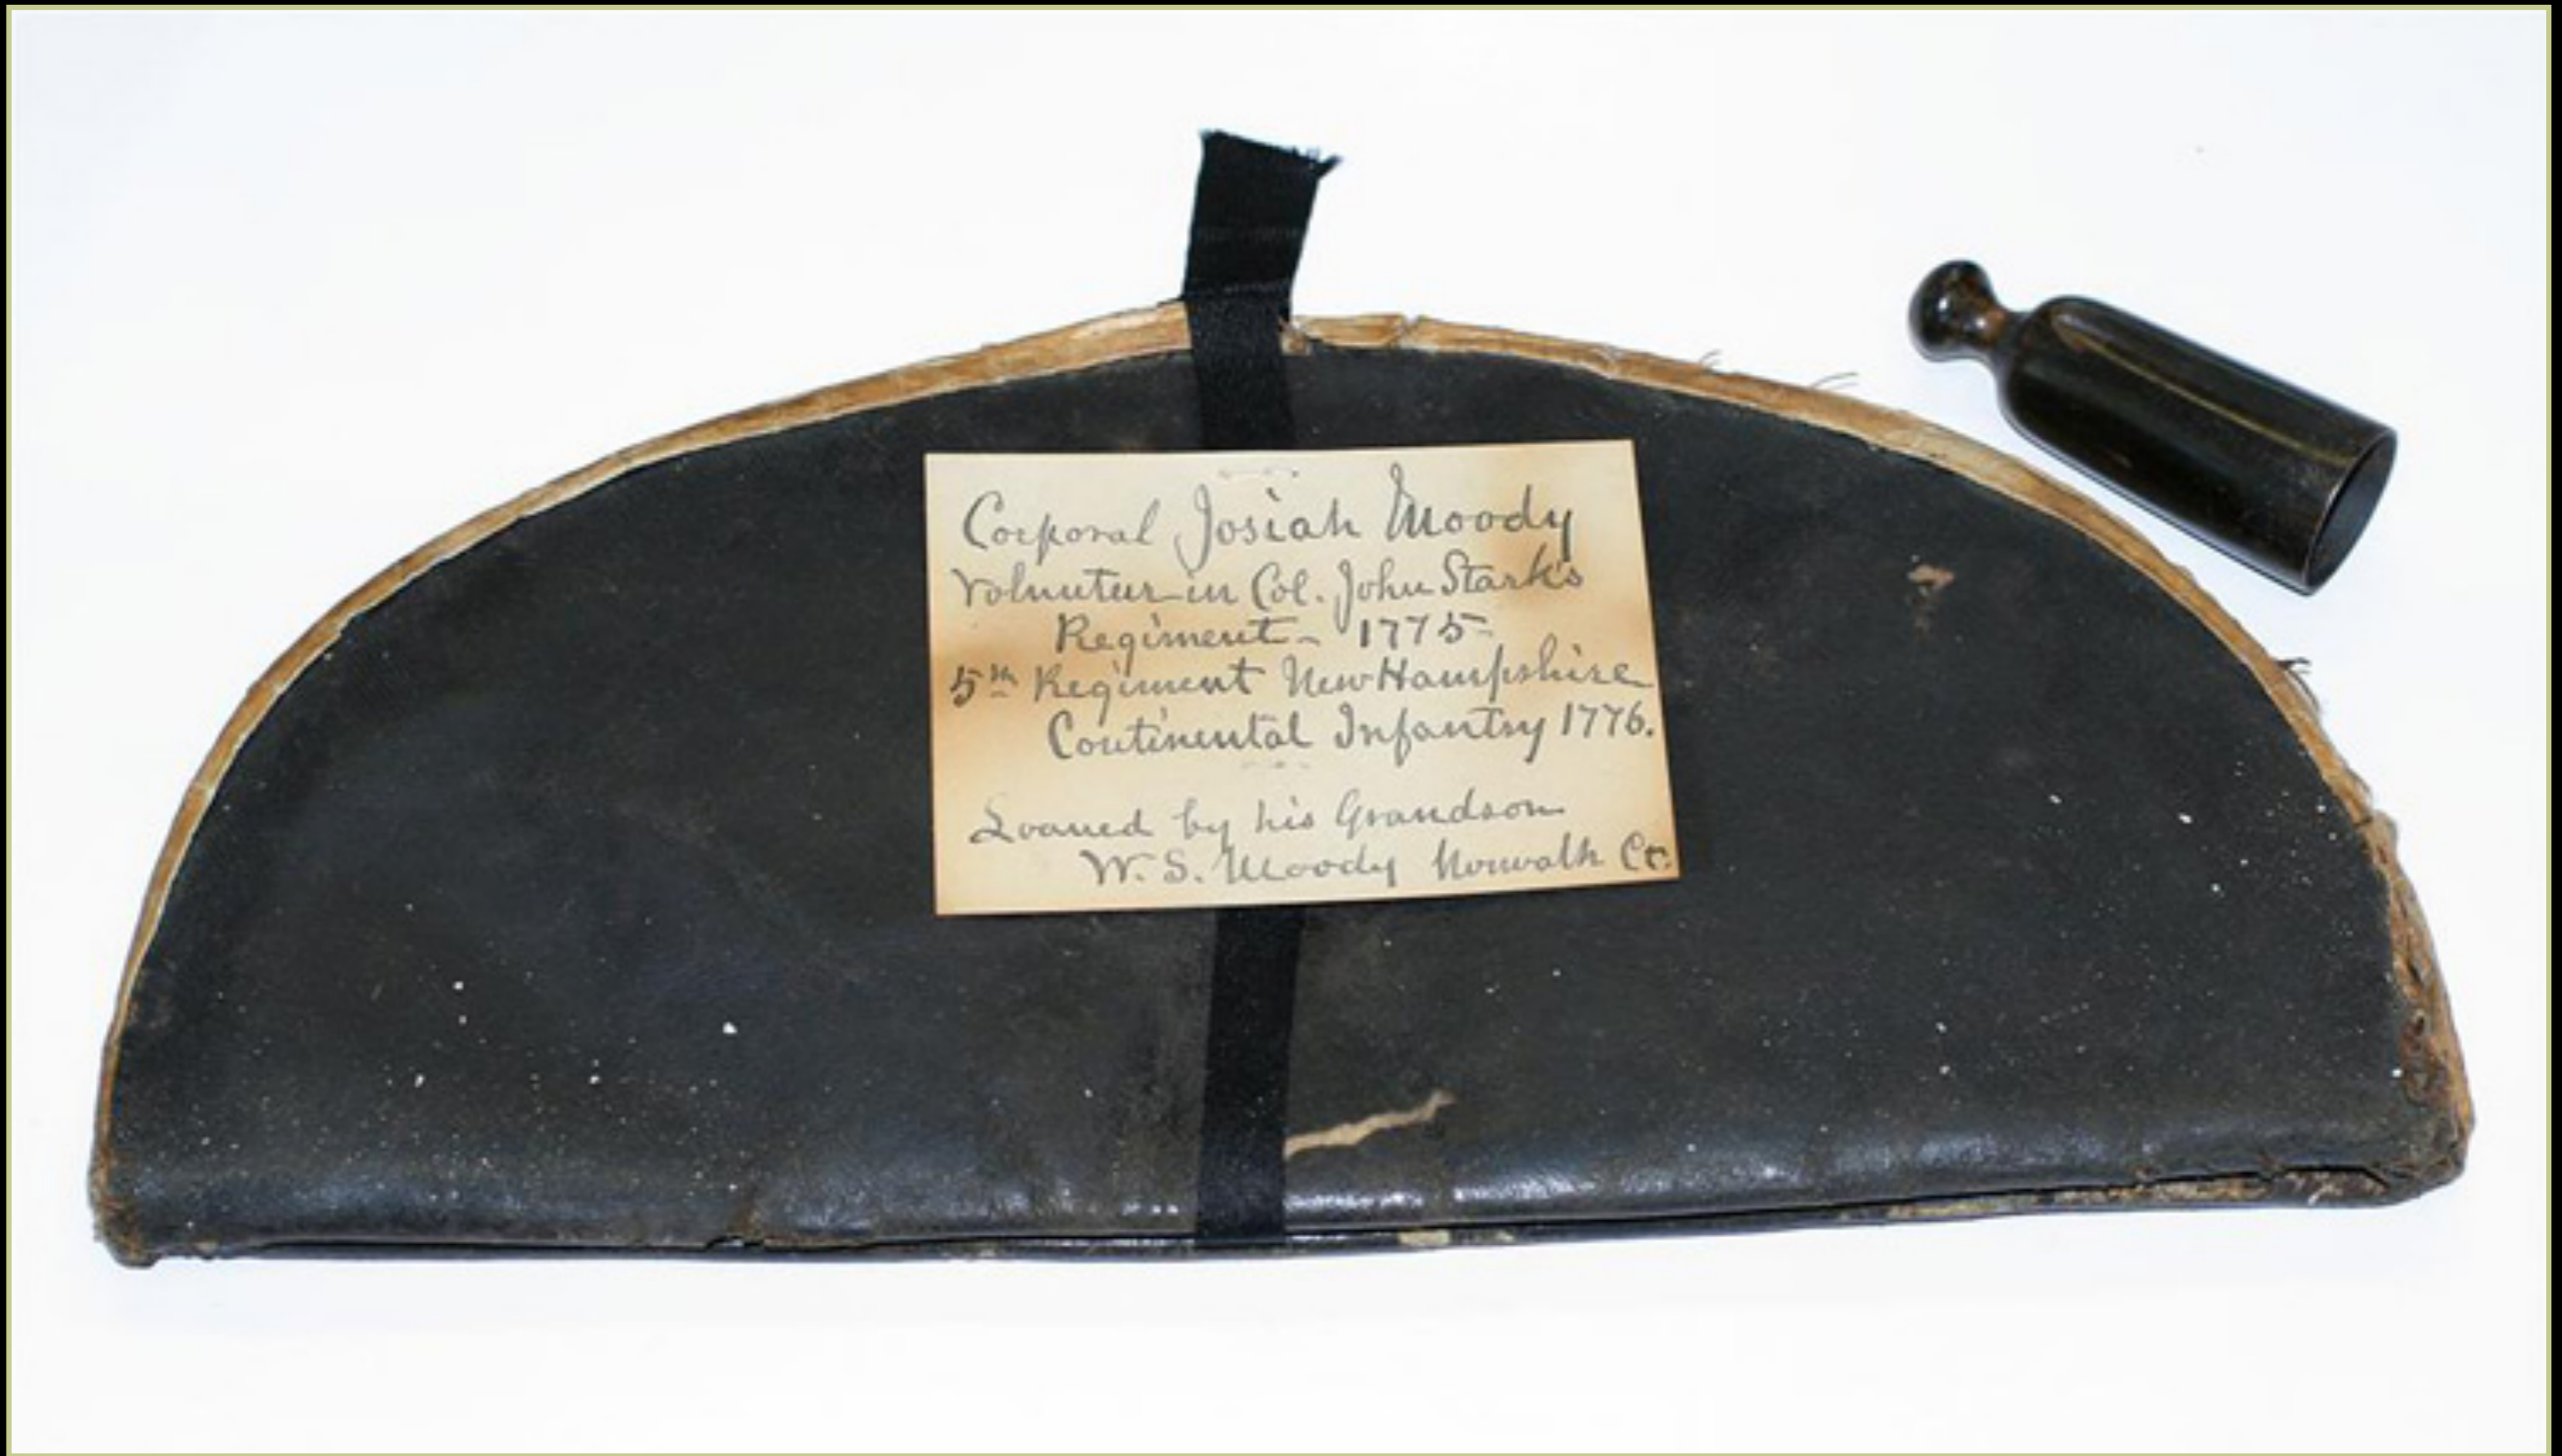 Corporal Josiah Moody
Volunteer in Col. John Stark's
Regiment - 1775-
5th Regiment New Hampshire
Continental Infantry 1776.
Loaned by his Grandson
W. S. Moody Norwalk Ct.